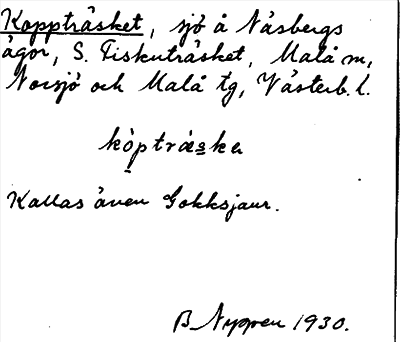 Koppträsket, sjö å Näsbergs
ägor, S. Fiskuträsket, Malå sn,
Norsjö och Malå tg, Västerb. l.
kòptræska
Kallas även Gokksjaur.
B. Nygren 1930.